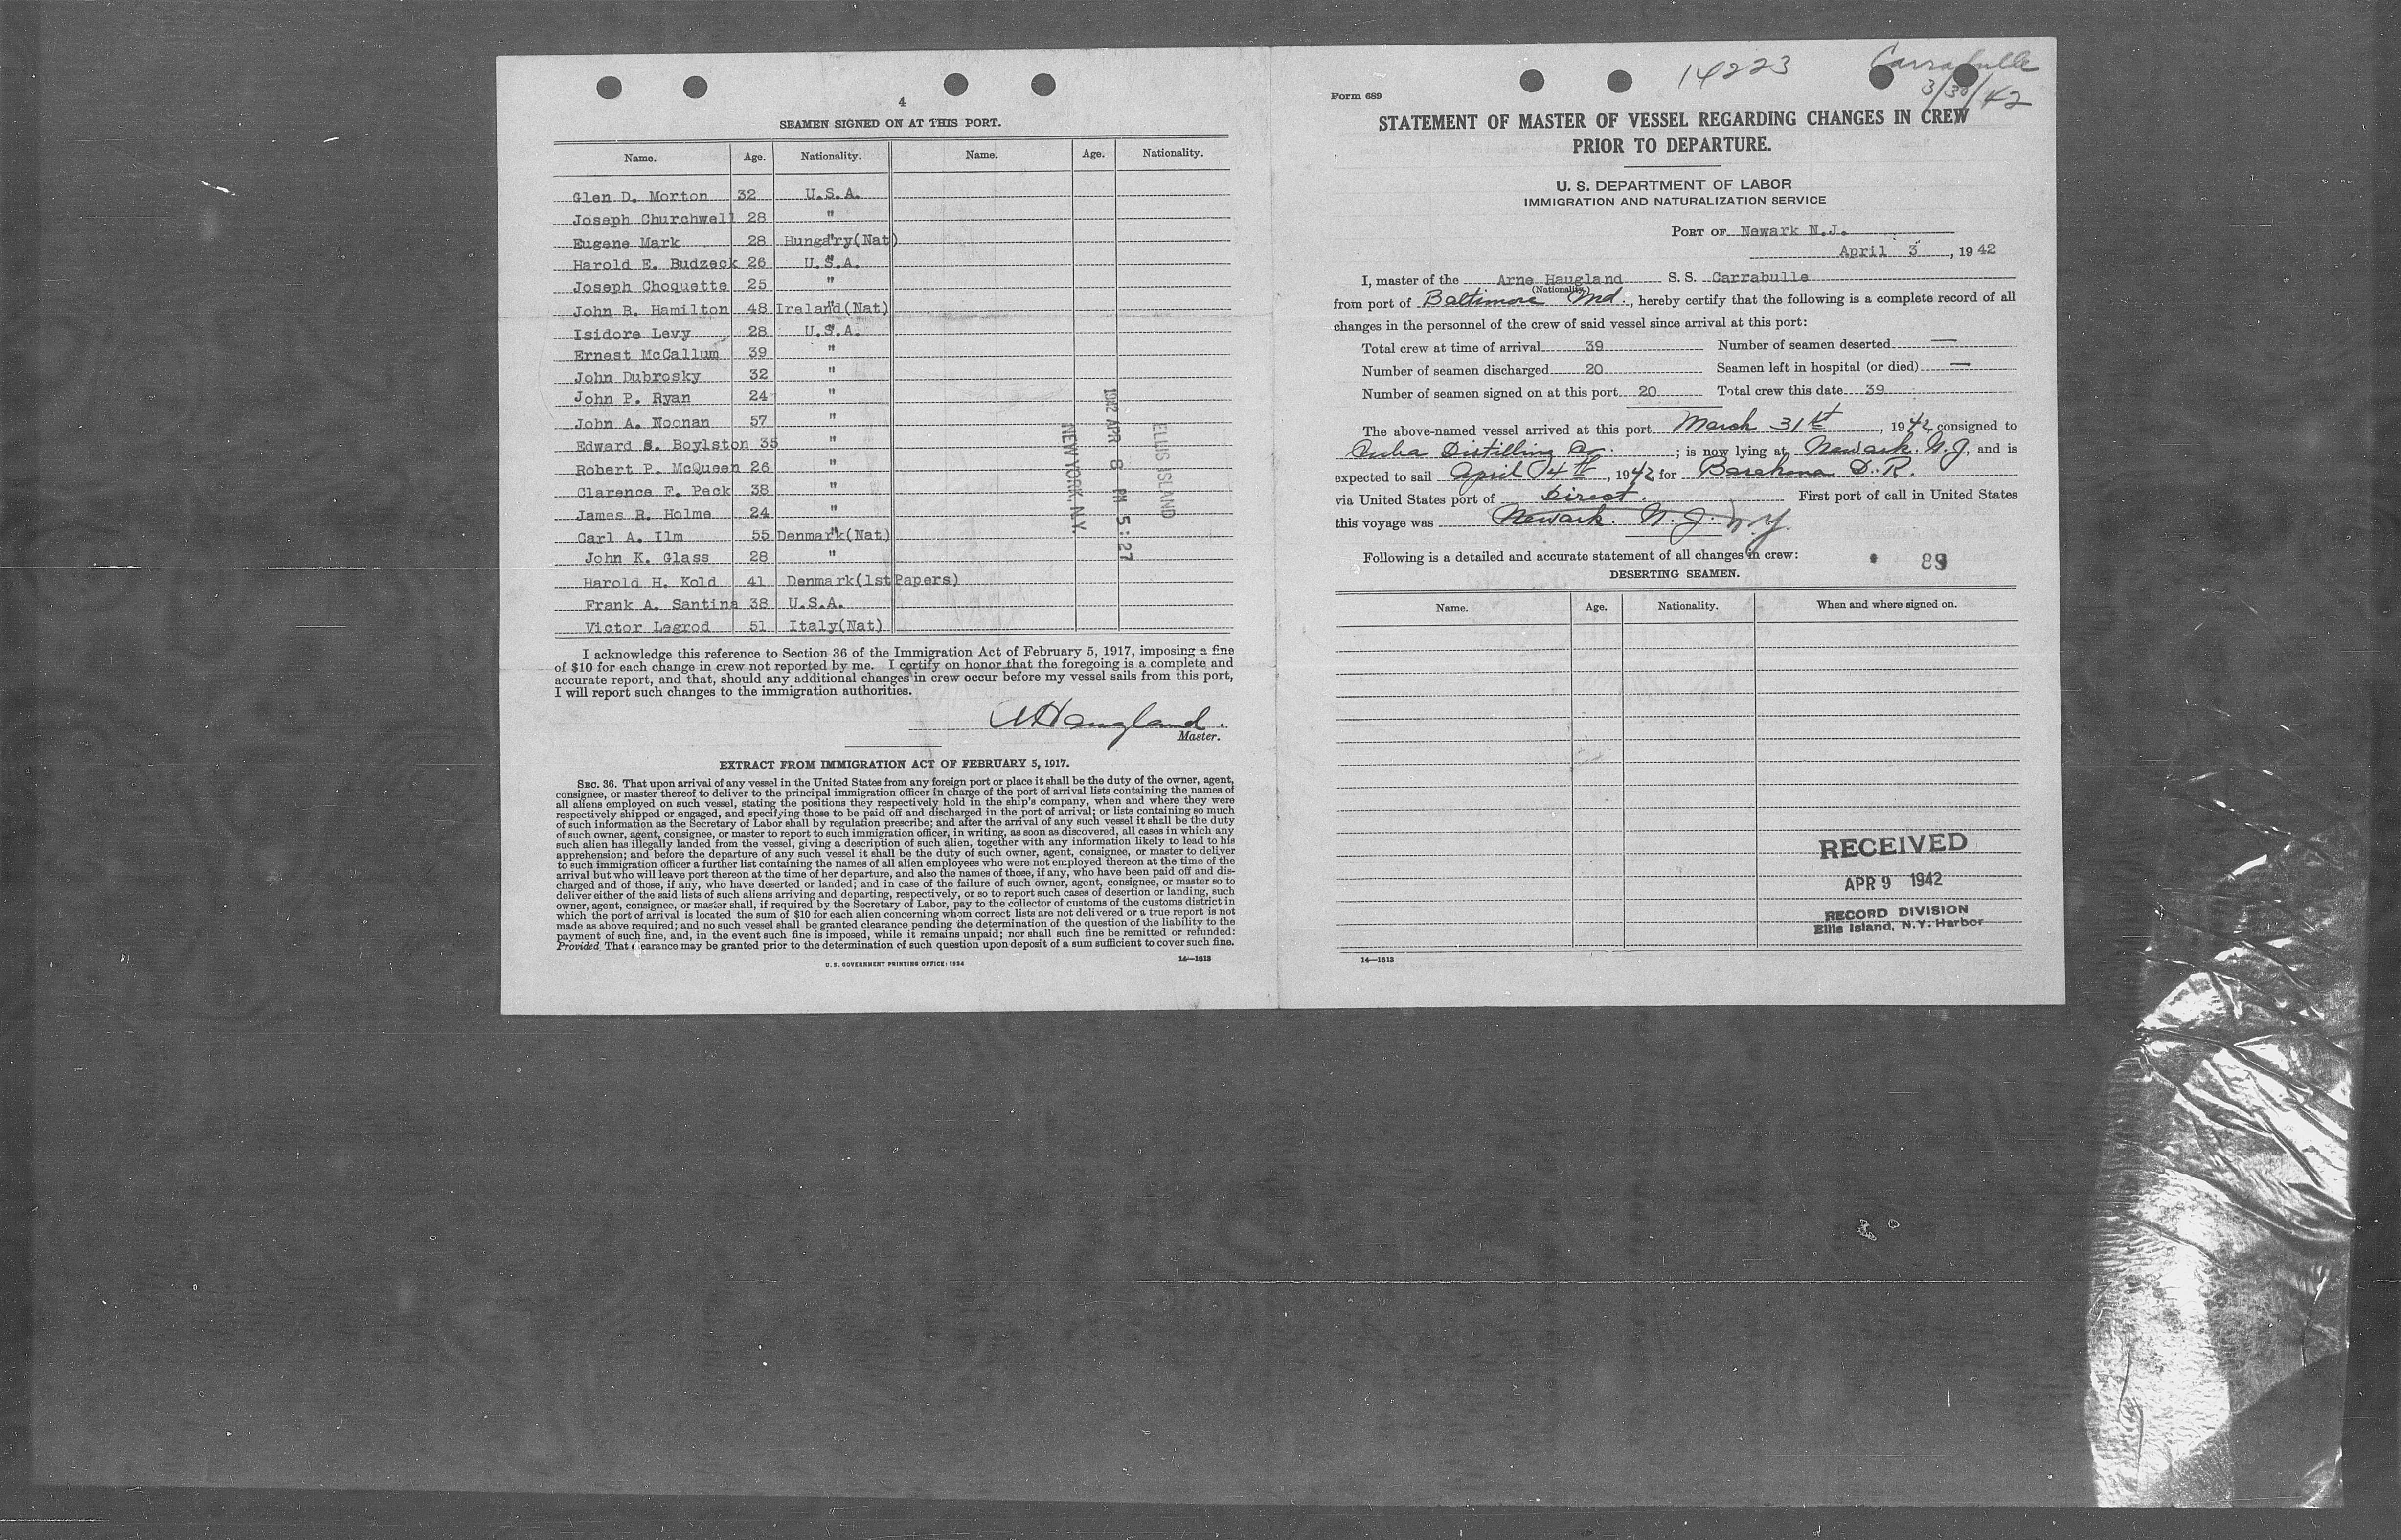 4
SEAMEN SIGNED ON AT THIS PORT.
Name. Age. Nationality. Name. Age. Nationality.
Glen D. Morton 32 U.S.A.
Joseph Churchwell 28 "
Eugene Mark 28 Hungary(Nat)
Harold E. Budzeck 26 U.S.A.
Joseph Choquette 25 "
John B. Hamilton 48 Ireland(Nat)
Isidore Levy 28 U.S.A.
Ernest McCallum 39 "
John Dubrosky 32 "
John P. Ryan 24 "
John A. Noonan 57 "
Edward S. Boylston 35 "
Robert P. McQueen 26 "
Clarence F. Peck 38 "
James R. Holme 24 "
Carl A. Ilm 55 Denmark(Nat)
John K. Glass 28 "
Harold H. Kold 41 Denmark(1stPapers)
Frank A. Santina 38 U.S.A.
Victor Legrod 51 Italy(Nat)
NEW YORK. N.Y.
1942 APR 8 PM 5:27
ELLIS ISLAND
I acknowledge this reference to Section 36 of the Immigration Act of February 5, 1917, imposing a fine
of $10 for each change in crew not reported by me. I certify on honor that the foregoing is a complete and
accurate report, and that, should any additional changes in crew occur before my vessel sails from this port,
I will report such changes to the immigration authorities.
A Haugland.
Master.
EXTRACT FROM IMMIGRATION ACT OF FEBRUARY 5, 1917.
SEC. 36. That upon arrival of any vessel in the United States from any foreign port or place it shall be the duty of the owner, agent,
consignee, or master thereof to deliver to the principal immigration officer in charge of the port of arrival lists containing the names of
all aliens employed on such vessel, stating the positions they respectively hold in the ship's company, when and where they were
respectively shipped or engaged, and specifying those to be paid off and discharged in the port of arrival; or lists containing so much
of such information as the Secretary of Labor shall by regulation prescribe; and after the arrival of any such vessel it shall be the duty
of such owner, agent, consignee, or master to report to such immigration officer, in writing, as soon as discovered, all cases in which any
such alien has illegally landed from the vessel, giving a description of such alien, together with any information likely to lead to his
apprehension; and before the departure of any such vessel it shall be the duty of such owner, agent, consignee, or master to deliver
to such immigration officer a further list containing the names of all alien employees who were not employed thereon at the time of the
arrival but who will leave port thereon at the time of her departure, and also the names of those, if any, who have been paid off and dis-
charged and of those, if any, who have deserted or landed; and in case of the failure of such owner, agent, consignee, or master so to
deliver either of the said lists of such aliens arriving and departing, respectively, or so to report such cases of desertion or landing, such
owner, agent, consignee, or master shall, if required by the Secretary of Labor, pay to the collector of customs of the customs district in
which the port of arrival is located the sum of $10 for each alien concerning whom correct lists are not delivered or a true report is not
made as above required; and no such vessel shall be granted clearance pending the determination of the question of the liability to the
payment of such fine, and, in the event such fine is imposed, while it remains unpaid; nor shall such fine be remitted or refunded:
Provided, That clearance may be granted prior to the determination of such question upon deposit of a sum sufficient to cover such fine.
U. S. GOVERNMENT PRINTING OFFICE: 1934
14—1613
14223
Carrabulle
3/30/42
Form 689
STATEMENT OF MASTER OF VESSEL REGARDING CHANGES IN CREW
PRIOR TO DEPARTURE.
U. S. DEPARTMENT OF LABOR
IMMIGRATION AND NATURALIZATION SERVICE
PORT OF Newark N.J.
April 3, 1942
I, master of the Arne Haugland S. S. Carrabulle
(Nationality.)
from port of Baltimore Md., hereby certify that the following is a complete record of all
changes in the personnel of the crew of said vessel since arrival at this port:
Total crew at time of arrival 39 Number of seamen deserted —
Number of seamen discharged 20 Seamen left in hospital (or died) —
Number of seamen signed on at this port 20 Total crew this date 39
The above-named vessel arrived at this port March 31st, 1942 consigned to
Cuba Distilling Co.; is now lying at Newark. N.J, and is
expected to sail April 4th, 1942 for Barahona D.R.
via United States port of Direct. First port of call in United States
this voyage was Newark. N.J. N.Y.
Following is a detailed and accurate statement of all changes in crew:
89
DESERTING SEAMEN.
Name. Age. Nationality. When and where signed on.
RECEIVED
APR 9 1942
RECORD DIVISION
Ellis Island, N.Y. Harbor
14—1613